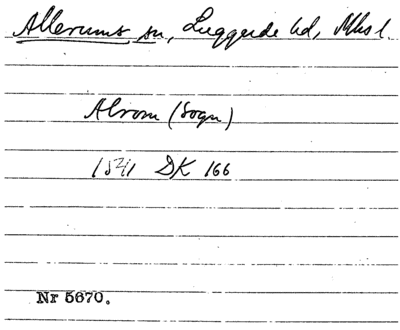 Allerums sn, Luggude hd, Mhs l.
Alrom (Sogn)
1541 DK 166
Nr 5670.